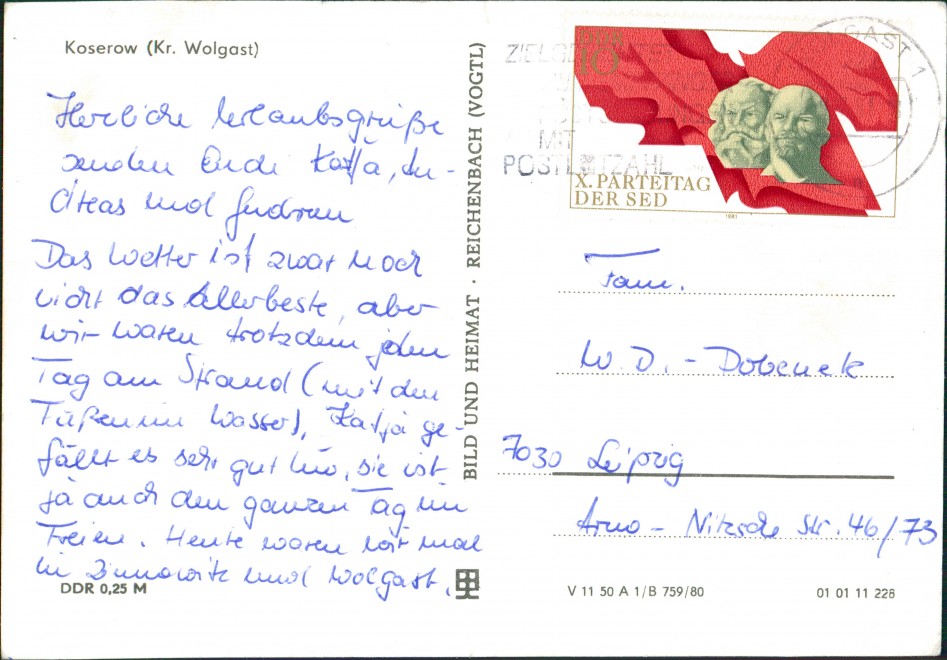 Koserow (Kr. Wolgast)
Herzliche Urlaubsgrüße
senden Euch Katja, An-
dreas und Gudrun
Das Wetter ist zwar noch
nicht das Allerbeste, aber
wir waren trotzdem jeden
Tag am Strand (mit den
Füßen im Wasser), Katja ge-
fällt es sehr gut hier, sie ist
ja auch den ganzen Tag im
Freien. Heute waren wir mal
in Zinnowitz und Wolgast.
DDR 0,25 M
BILD UND HEIMAT · REICHENBACH (VOGTL)
MIT
POSTLEITZAHL
GAST 1
DDR
10
X. PARTEITAG
DER SED
1981
Fam.
W. D. - Dobeneck
7030 Leipzig
Arno - Nitzsche Str. 46/73
V 11 50 A 1/B 759/80
01 01 11 228